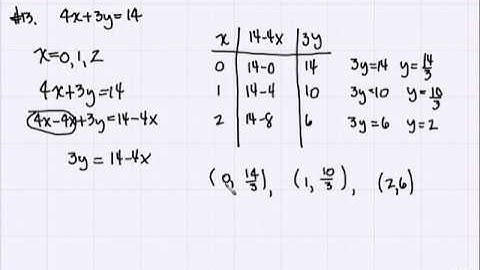 #13. 4x+3y=14
x=0,1,2
4x+3y=14
4x-4x+3y=14-4x
3y=14-4x
x 14-4x 3y
0 14-0 14 3y=14 y=14/3
1 14-4 10 3y=10 y=10/3
2 14-8 6 3y=6 y=2
(0, 14/3), (1, 10/3), (2,6)